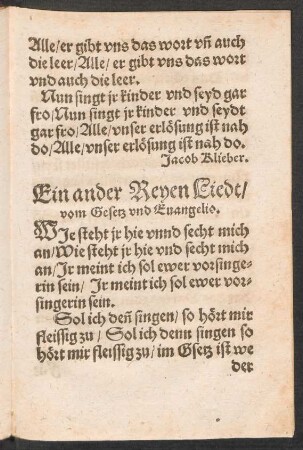 Alle/er gibt vns das wort vñ auch
die leer/Alle/ er gibt vns das wort
vnd auch die leer.
Nun singt jr kinder vnd seyd gar
fro/Nun singt jr kinder vnd seydt
gar fro/Alle/vnser erlösung ist nah
do/Alle/vnser erlösung ist nah do.
Jacob Klieber.
Ein ander Reyen Liedt/
vom Gesetz vnd Euangelio.
WJe steht jr hie vnnd secht mich
an/Wie steht jr hie vnd secht mich
an/Jr meint ich sol ewer vorsinge-
rin sein/ Jr meint ich sol ewer vor-
singerin sein.
Sol ich deñ singen/ so hört mir
fleissig zu/ Sol ich denn singen so
hört mir fleissig zu/ im Gsetz ist we
der